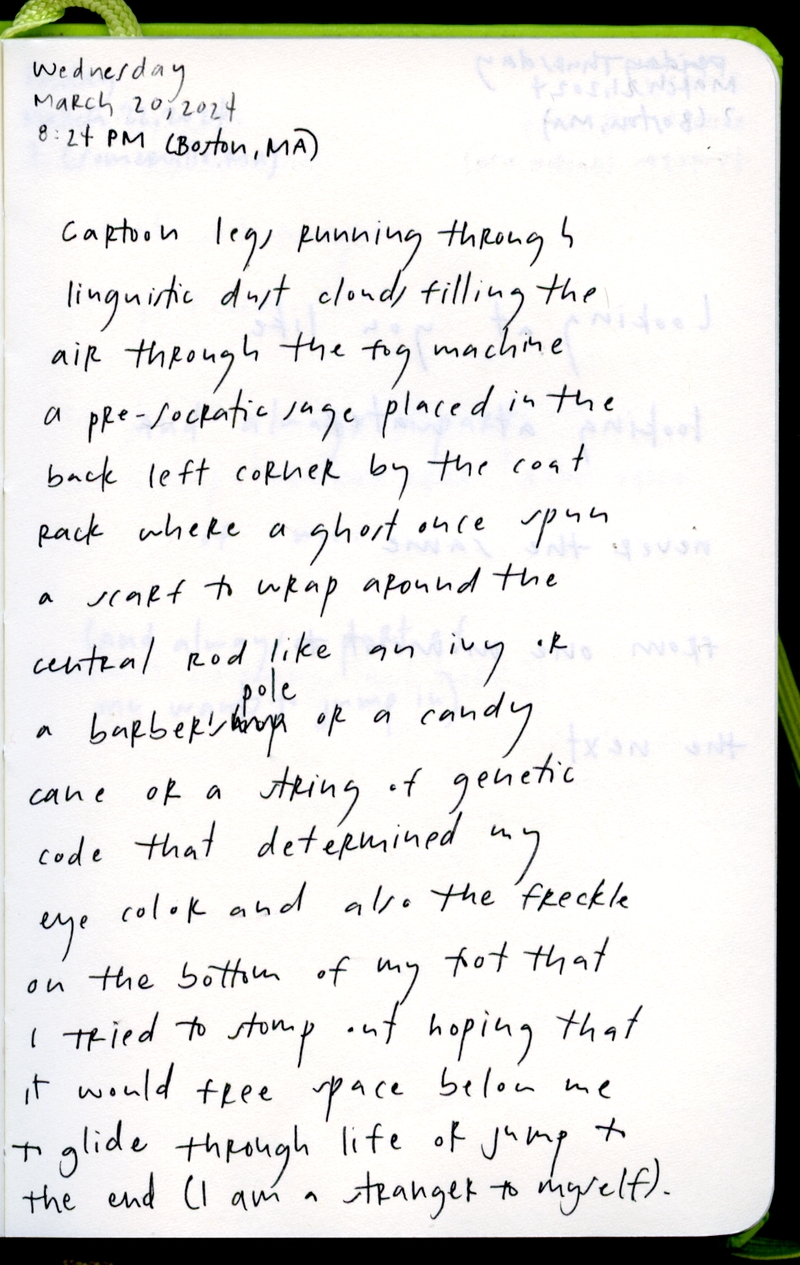 Wednesday
March 20, 2024
8:24 PM (Boston, MA)
Cartoon legs running through
linguistic dust clouds filling the
air through the fog machine
a pre-socratic sage placed in the
back left corner by the coat
rack where a ghost once spun
a scarf to wrap around the
central rod like an ivy or
pole
a barber's or a candy
cane or a string of genetic
code that determined my
eye color and also the freckle
on the bottom of my foot that
I tried to stomp out hoping that
it would free space below me
to glide through life or jump to
the end (I am a stranger to myself).